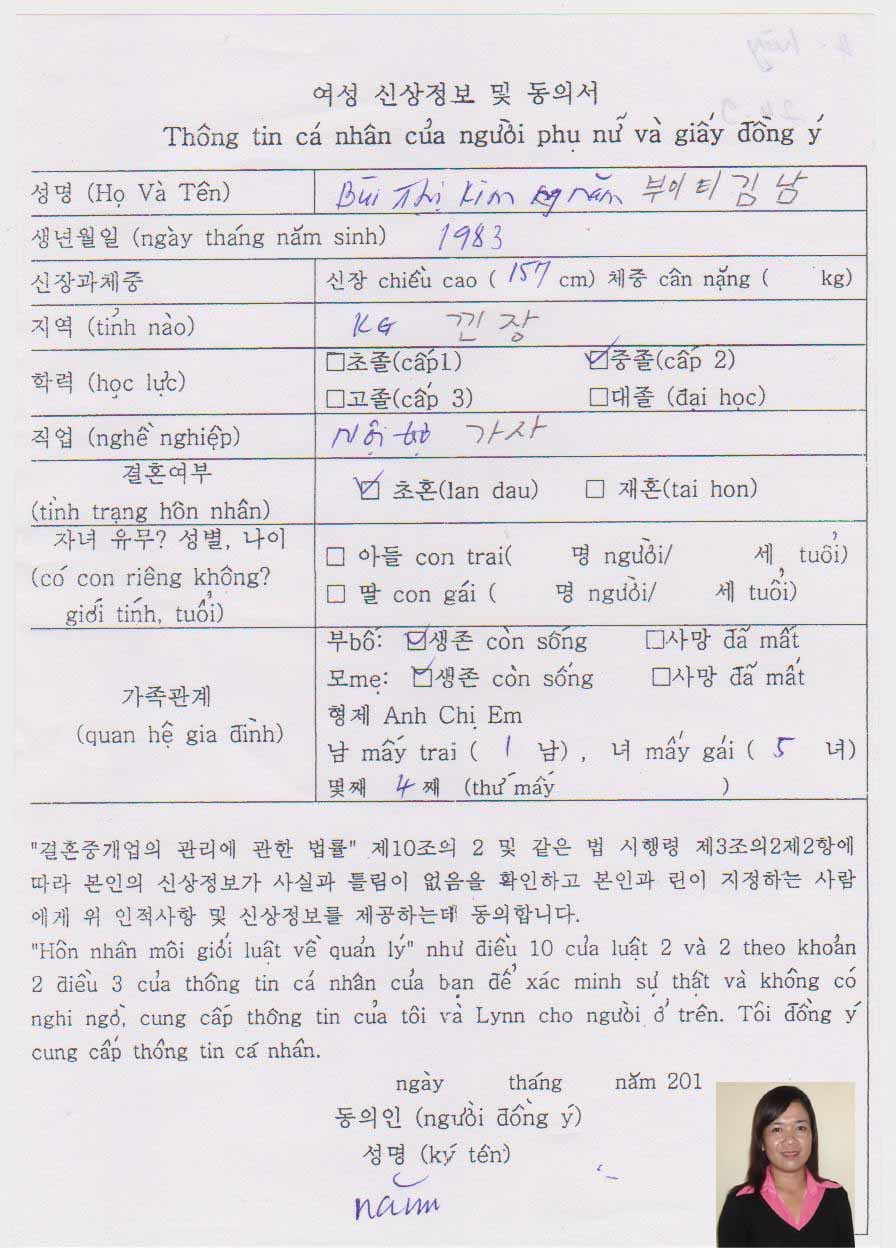 여성 신상정보 및 동의서
Thông tin cá nhân của người phụ nữ và giấy đồng ý
성명 (Họ Và Tên) Bùi Thị Kim năm 부이티김남
생년월일 (ngày tháng năm sinh) 1983
신장과체중 신장 chiều cao ( 157 cm) 체중 cân nặng ( kg)
지역 (tỉnh nào) KG 끼장
학력 (học lực) □초졸(cấp1) ☑중졸(cấp 2)
□고졸(cấp 3) □대졸 (đại học)
직업 (nghề nghiệp) Nội trợ 가사
결혼여부
(tình trạng hôn nhân) ☑ 초혼(lan dau) □ 재혼(tai hon)
자녀 유무? 성별, 나이
(có con riêng không?
giới tính, tuổi)
□ 아들 con trai( 명 người/ 세 tuổi)
□ 딸 con gái ( 명 người/ 세 tuổi)
가족관계
(quan hệ gia đình)
부bố: ☑생존 còn sống □사망 đã mất
모mẹ: ☑생존 còn sống □사망 đã mất
형제 Anh Chị Em
남 mấy trai ( 1 남) , 녀 mấy gái ( 5 녀)
몇째 4째 (thứ mấy )
"결혼중개업의 관리에 관한 법률" 제10조의 2 및 같은 법 시행령 제3조의2제2항에
따라 본인의 신상정보가 사실과 틀림이 없음을 확인하고 본인과 린이 지정하는 사람
에게 위 인적사항 및 신상정보를 제공하는데 동의합니다.
"Hôn nhân môi giới luật về quản lý" như điều 10 của luật 2 và 2 theo khoản
2 điều 3 của thông tin cá nhân của bạn để xác minh sự thật và không có
nghi ngờ, cung cấp thông tin của tôi và Lynn cho người ở trên. Tôi đồng ý
cung cấp thông tin cá nhân.
ngày tháng năm 201
동의인 (người đồng ý)
성명 (ký tên)
năm